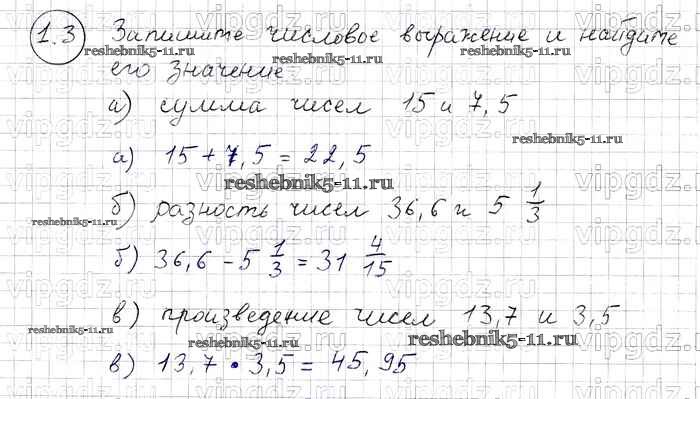 1.3 Запишите числовое выражение и найдите
reshebnik5-11.ru reshebnik5-11.ru reshebnik5-11.ru
его значение
а) сумма чисел 15 и 7,5
reshebnik5-11.ru
а) 15 + 7,5 = 22,5
reshebnik5-11.ru
б) разность чисел 36,6 и 5 1/3
reshebnik5-11.ru
б) 36,6 - 5 1/3 = 31 4/15
в) произведение чисел 13,7 и 3,5
reshebnik5-11.ru reshebnik5-11.ru reshebnik5-11.ru
в) 13,7 • 3,5 = 45,95
vipgdz.ru vipgdz.ru vipgdz.ru vipgdz.ru